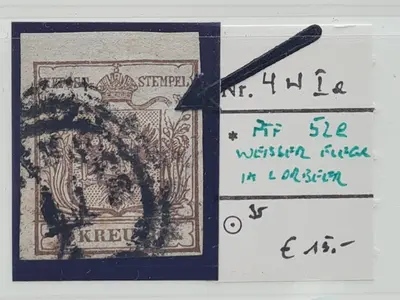 STEMPEL
KREUZ
Nr. 4 H I a
* PFF 52a
WEISSER FLECK
IM LORBEER
35
€ 15.-